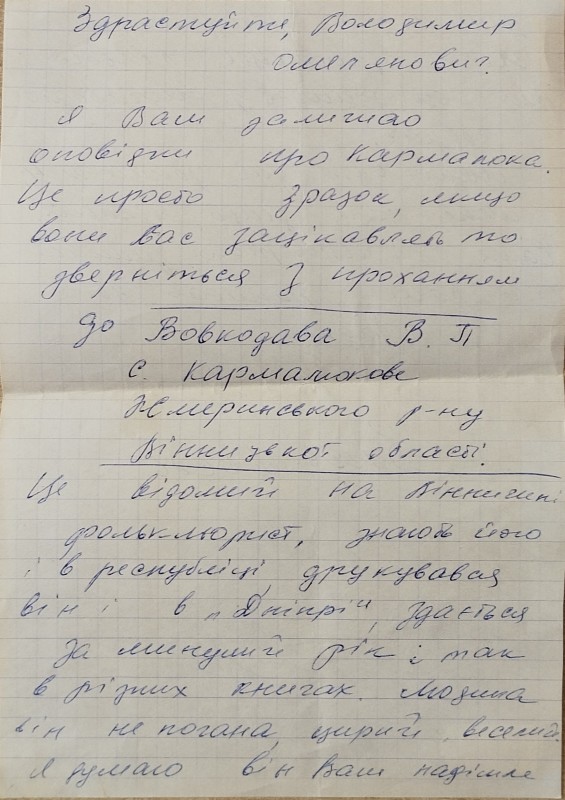 Здраствуйте, Володимир
Омелянович.
Я Вам залишаю
оповідки про Кармалюка.
Це просто зразок, якщо
вони Вас зацікавлять то
зверніться з проханням
до Вовкодава В. П
с. Кармалюкове
Жмеринського р-ну
Вінницької області.
Це відомий на Вінничині
фольклорист, знають його
і в республіці, друкувався
він і в "Дніпрі", здається
за минулий рік і так
в різних книгах. Людина
він не погана, щирий, веселий.
Я думаю він Вам надішле